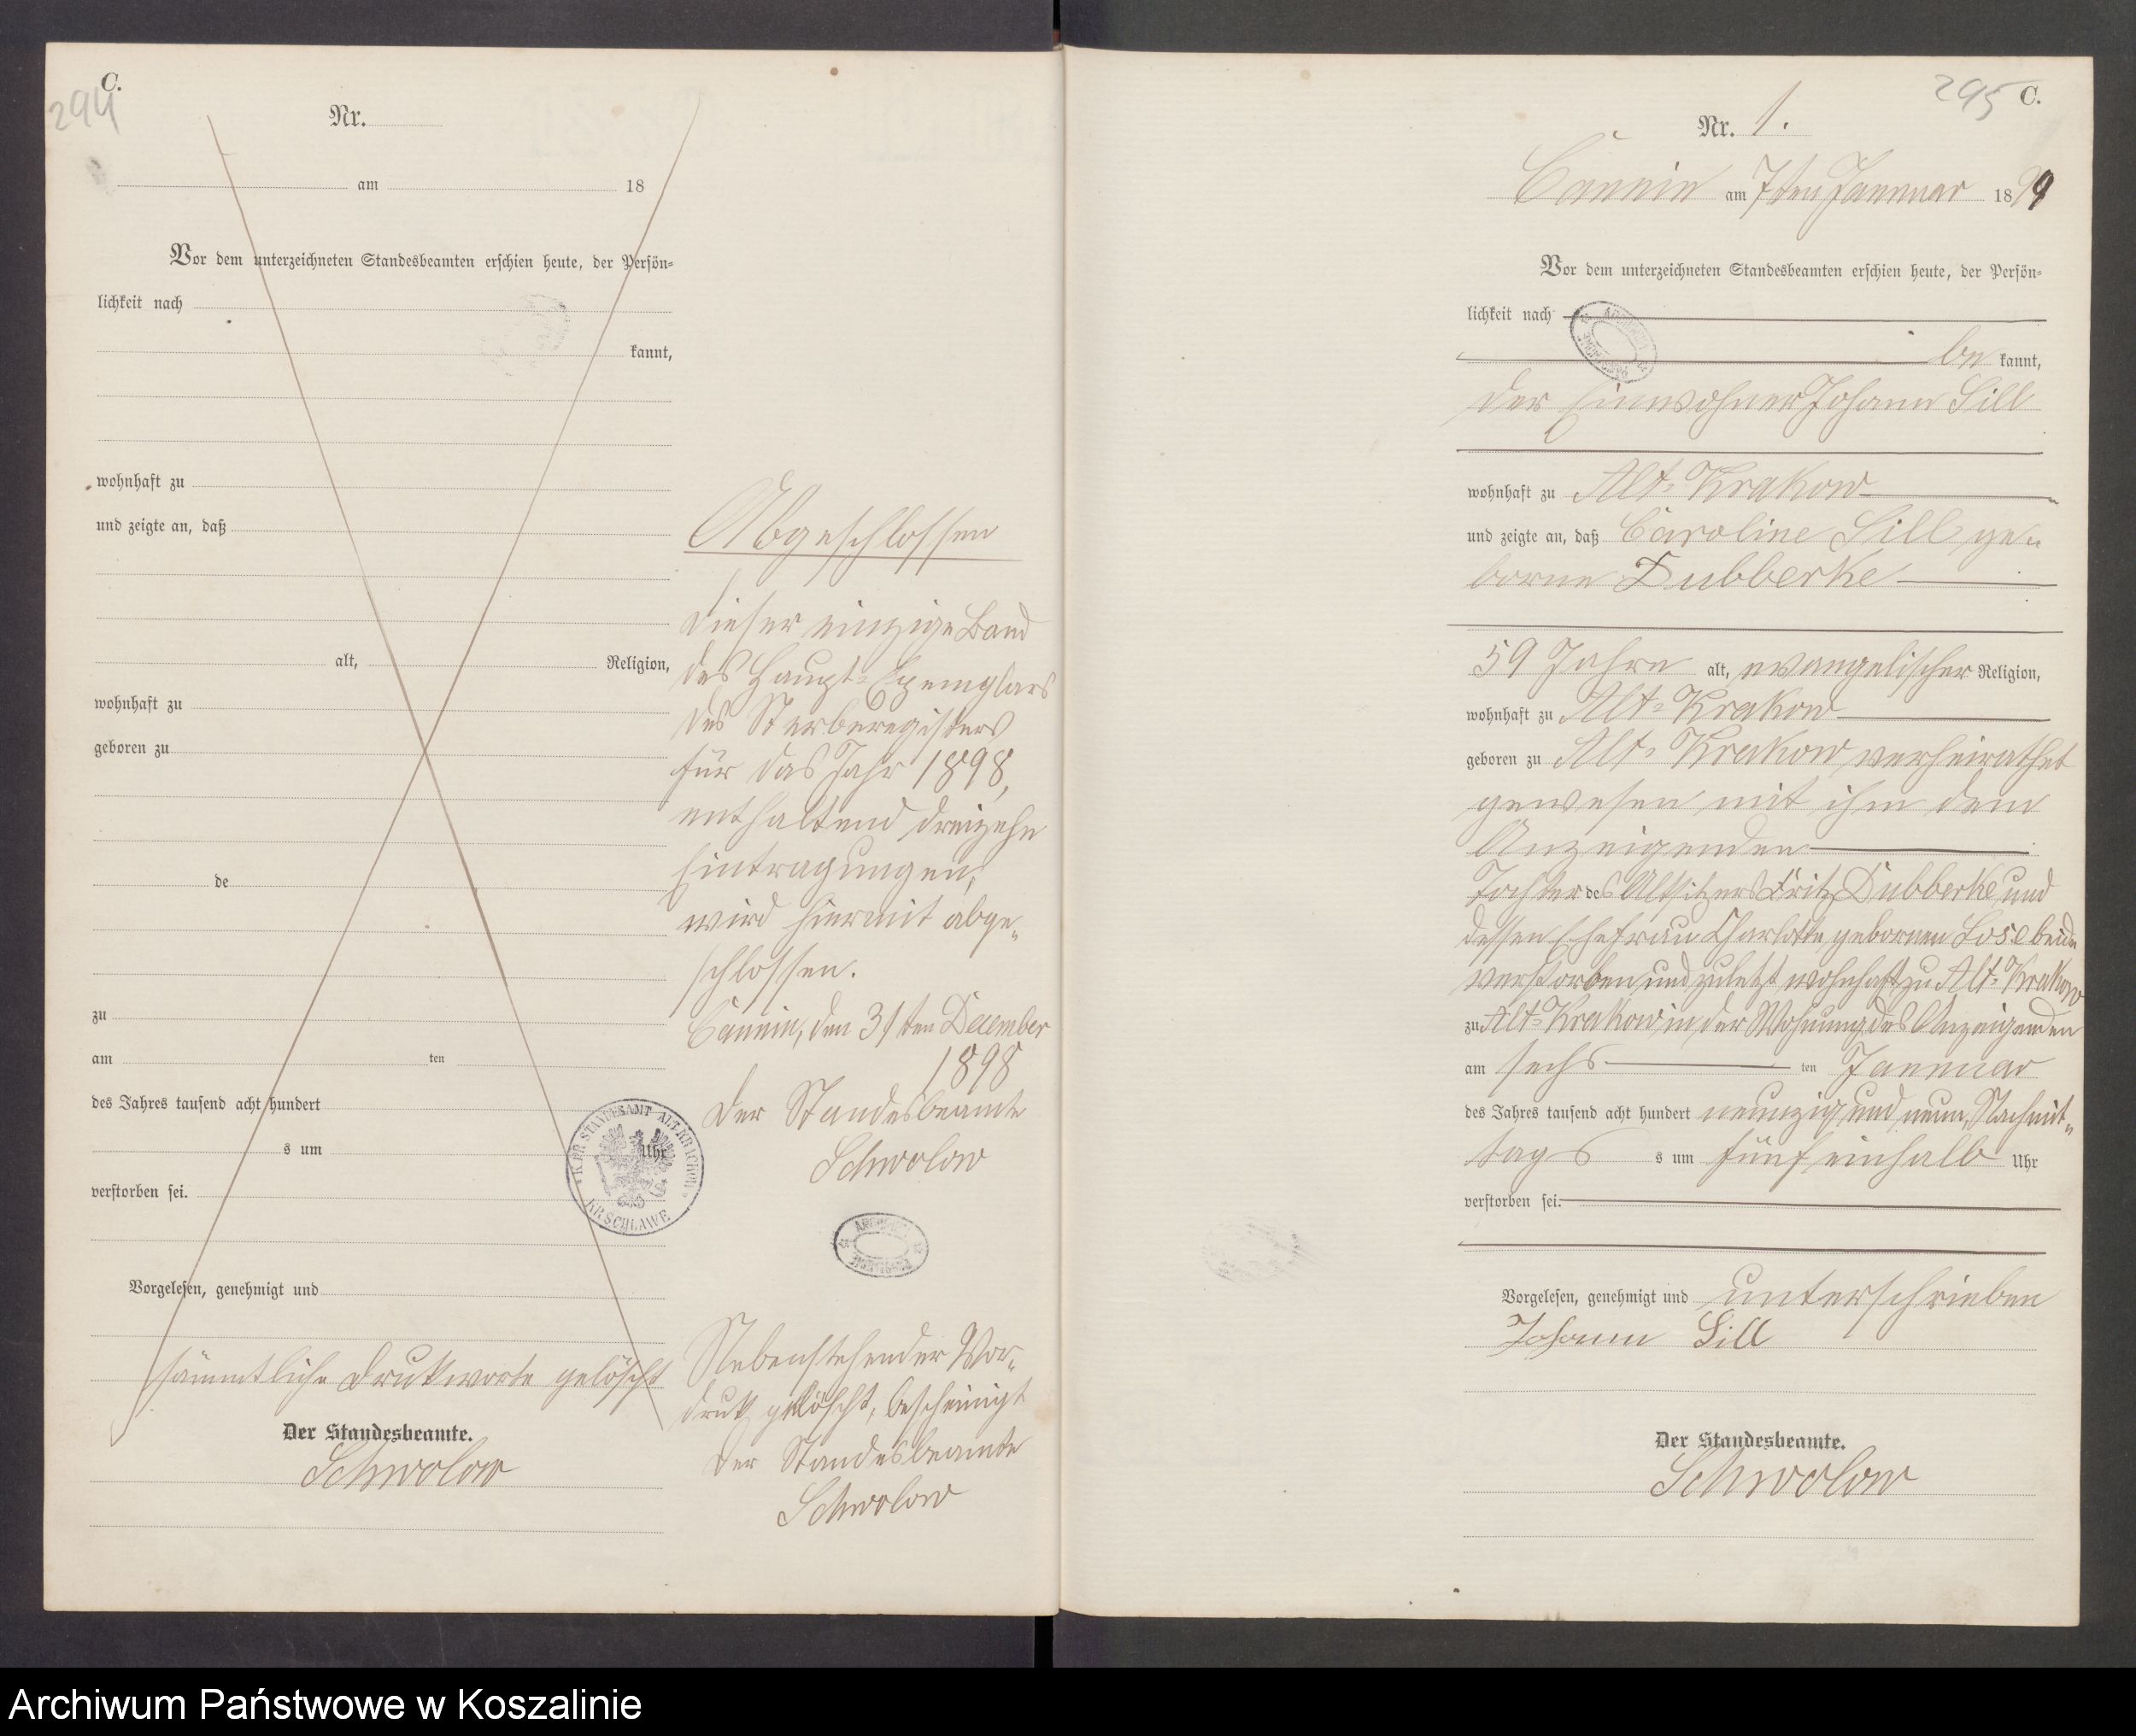 C.
294
Nr.
am 18
Vor dem unterzeichneten Standesbeamten erschien heute, der Persön=
lichkeit nach
kannt,
wohnhaft zu
und zeigte an, daß
alt, Religion,
wohnhaft zu
geboren zu
de
zu
am ten
des Jahres tausend acht hundert
s um Uhr
verstorben sei.
Vorgelesen, genehmigt und
sämmtliche Druckworte gelöscht
Der Standesbeamte.
Schwolow
Abgeschlossen
Dieser einzige Band
des Haupt=Exemplars
des Sterberegisters
für das Jahr 1898,
enthaltend dreizehn
Eintragungen,
wird hiermit abge„
schlossen.
Cannin, den 31ten December
1898
Der Standesbeamte
Schwolow
STANDESAMT ALT KRACKOW
KR SCHLAWE
ARCHIWUM
Nebenstehender Vor„
druck gelöscht, bescheinigt
Der Standesbeamte
Schwolow
295 C.
Nr. 1.
Cannin am 7ten Januar 1899
Vor dem unterzeichneten Standesbeamten erschien heute, der Persön=
lichkeit nach
be kannt,
der Einwohner Johann Sill
wohnhaft zu Alt=Krakow
und zeigte an, daß Caroline Sill ge„
borne Dubberke
59 Jahre alt, evangelischer Religion,
wohnhaft zu Alt=Krakow
geboren zu Alt=Krakow verheirathet
gewesen mit ihm dem
Anzeigenden
Tochter des Altsitzers Fritz Dubberke und
dessen Ehefrau Charlotte gebornen Lose beide
verstorben und zuletzt wohnhaft zu Alt=Krakow
zu Alt=Krakow in der Wohnung des Anzeigenden
am sechs ten Januar
des Jahres tausend acht hundert neunzig und neun, Nachmit„
tags s um fünf einhalb Uhr
verstorben sei.
Vorgelesen, genehmigt und unterschrieben
Johann Sill
Der Standesbeamte.
Schwolow
Archiwum Państwowe w Koszalinie